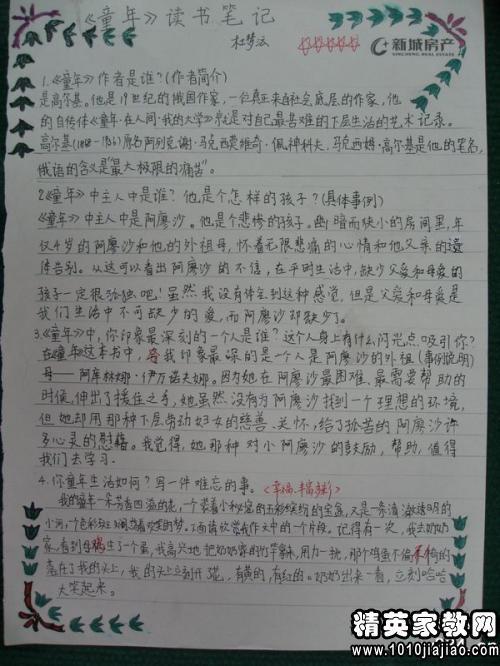 《童年》读书笔记
杜梦沄
新城房产
XINCHENG REAL ESTATE
1.《童年》作者是谁?(作者简介)
是高尔基。他是19世纪的俄国作家,一位真正来自社会底层的作家,他
的自传体《童年·在人间·我的大学》就是对自己最苦难的下层生活的艺术记录。
高尔基(1868-1936)原名阿列克谢·马克西莫维奇·佩神科夫。马克西姆·高尔基是他的笔名,
俄语的含义是"最大极限的痛苦"。
2《童年》中主人中是谁?他是个怎样的孩子?(具体事例)
《童年》中主人中是阿廖沙。他是个悲惨的孩子。幽暗而狭小的房间里,年
仅4岁的阿廖沙和他的外祖母,怀着无限悲痛的心情和他父亲的遗
体告别。从这可以看出阿廖沙的不信,在平时生活中,缺少父爱和母爱的
孩子一定很孤独吧!虽然我没有体会到这种感觉,但是父爱和母爱是
我们生活中不可缺少的爱,而阿廖沙却缺少了。
3.《童年》中,你印象最深刻的一个人是谁?这个人身上有什么闪光点吸引你?
在《童年》这本书中,令我印象最深的是一个人是阿廖沙的外祖(事例说明)
母——阿库林娜·伊万诺夫娜。因为她在阿廖沙最困难、最需要帮助的
时候,伸出了援住之手,她虽然没有为阿廖沙找到一个理想的环境,
但她却用那种下层劳动妇女的慈善、关怀,给了孤苦的阿廖沙许
多心灵的慰藉。我觉得,她那种对小阿廖沙的鼓励,帮助,值得
我们去学习.
4.你童年生活如何?写一件难忘的事。(幸福、丰富多彩)
我的童年一朵芳香四溢的花,一个装着小秘密的五彩缤纷的宝盒,又是一条清澈透明的
小河,一个色彩斑斓的欢笑的梦。下面请欣赏我作文中的一个片段。记得有一次,我去奶奶
家,看到母鸡生了一个蛋,我高兴地把奶奶家的竹竿拿来,用力一挑,那个鸡蛋不偏不倚的
落在了我的头上,我的头上立刻开花,有黄的,有红的。奶奶出来一看,立刻哈哈
大笑起来。
精英家教网
www.1010jiajiao.com